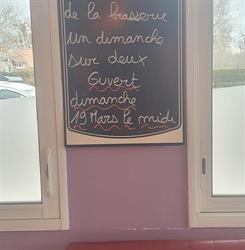 de la brasserie
un dimanche
sur deux.
Ouvert
dimanche
19 Mars le midi